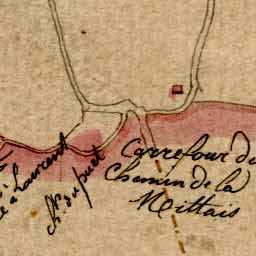 Carrefour du
Chemin de la
Mittais
Ch. du puet
é a Laurent